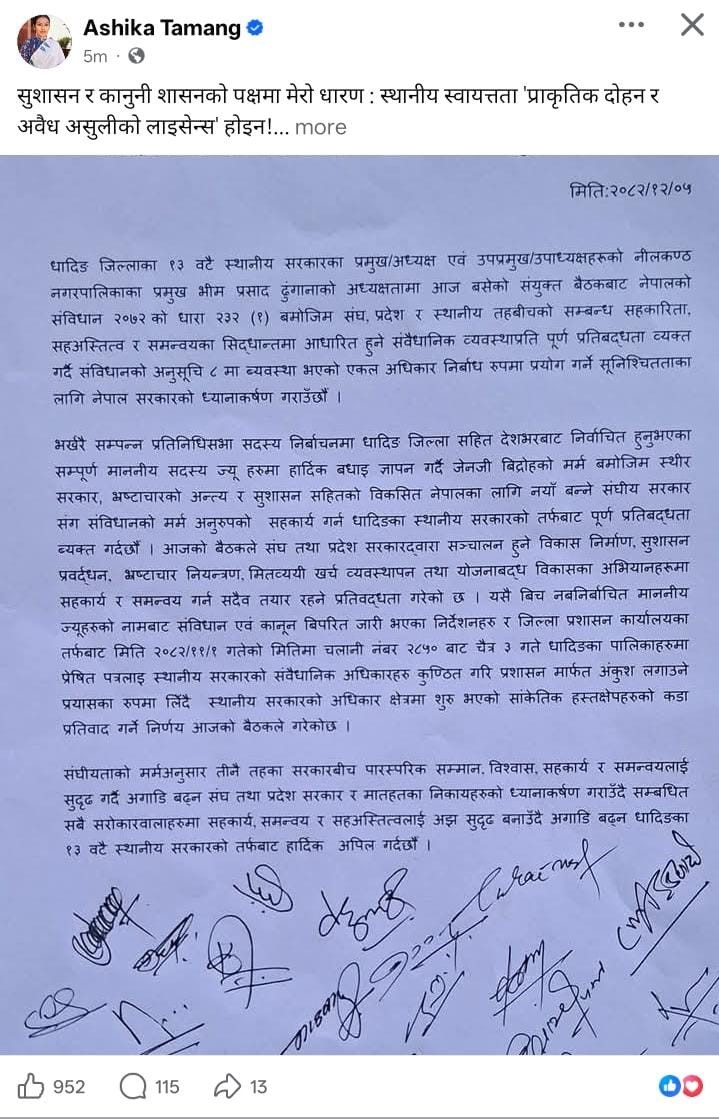 Ashika Tamang
5m
सुशासन र कानुनी शासनको पक्षमा मेरो धारण : स्थानीय स्वायत्तता 'प्राकृतिक दोहन र
अवैध असुलीको लाइसेन्स' होइन!... more
मिति:२०८२/१२/०५
धादिङ जिल्लाका १३ वटै स्थानीय सरकारका प्रमुख/अध्यक्ष एवं उपप्रमुख/उपाध्यक्षहरूको नीलकण्ठ
नगरपालिकाका प्रमुख भीम प्रसाद ढुंगानाको अध्यक्षतामा आज बसेको संयुक्त बैठकबाट नेपालको
संविधान २०७२ को धारा २३२ (१) बमोजिम संघ, प्रदेश र स्थानीय तहबीचको सम्बन्ध सहकारिता,
सहअस्तित्व र समन्वयका सिद्धान्तमा आधारित हुने संवैधानिक व्यवस्थाप्रति पूर्ण प्रतिबद्धता व्यक्त
गर्दै संविधानको अनुसूचि ८ मा व्यवस्था भएको एकल अधिकार निर्बाध रुपमा प्रयोग गर्ने सूनिश्चितताका
लागि नेपाल सरकारको ध्यानाकर्षण गराउँछौं ।
भर्खरै सम्पन्न प्रतिनिधिसभा सदस्य निर्वाचनमा धादिङ जिल्ला सहित देशभरबाट निर्वाचित हुनुभएका
सम्पूर्ण माननीय सदस्य ज्यू हरुमा हार्दिक बधाइ ज्ञापन गर्दै जेनजी बिद्रोहको मर्म बमोजिम स्थीर
सरकार, भ्रष्टाचारको अन्त्य र सुशासन सहितको विकसित नेपालका लागि नयाँ बन्ने संघीय सरकार
संग संविधानको मर्म अनुरुपको सहकार्य गर्न धादिङका स्थानीय सरकारको तर्फबाट पूर्ण प्रतिबद्धता
व्यक्त गर्दछौं । आजको बैठकले संघ तथा प्रदेश सरकारद्वारा सञ्चालन हुने विकास निर्माण, सुशासन
प्रवर्द्धन, भ्रष्टाचार नियन्त्रण, मितव्ययी खर्च व्यवस्थापन तथा योजनाबद्ध विकासका अभियानहरूमा
सहकार्य र समन्वय गर्न सदैव तयार रहने प्रतिवद्धता गरेको छ । यसै बिच नबनिर्वाचित माननीय
ज्यूहरुको नामबाट संविधान एवं कानून बिपरित जारी भएका निर्देशनहरु र जिल्ला प्रशासन कार्यालयका
तर्फबाट मिति २०८२/११/१ गतेको मितिमा चलानी नंबर २८५० बाट चैत्र ३ गते धादिङका पालिकाहरुमा
प्रेषित पत्रलाइ स्थानीय सरकारको संवैधानिक अधिकारहरु कुण्ठित गरि प्रशासन मार्फत अंकुश लगाउने
प्रयासका रुपमा लिँदै स्थानीय सरकारको अधिकार क्षेत्रमा शुरु भएको सांकेतिक हस्तक्षेपहरुको कडा
प्रतिवाद गर्ने निर्णय आजको बैठकले गरेकोछ ।
संघीयताको मर्मअनुसार तीनै तहका सरकारबीच पारस्परिक सम्मान, विश्वास, सहकार्य र समन्वयलाई
सुदृढ गर्दै अगाडि बढ्न संघ तथा प्रदेश सरकार र मातहतका निकायहरुको ध्यानाकर्षण गराउँदै सम्बधित
सबै सरोकारवालाहरुमा सहकार्य, समन्वय र सहअस्तित्वलाई अझ सुदृढ बनाउँदै अगाडि बढ्न धादिङका
१३ वटै स्थानीय सरकारको तर्फबाट हार्दिक अपिल गर्दछौं ।
952
115
13